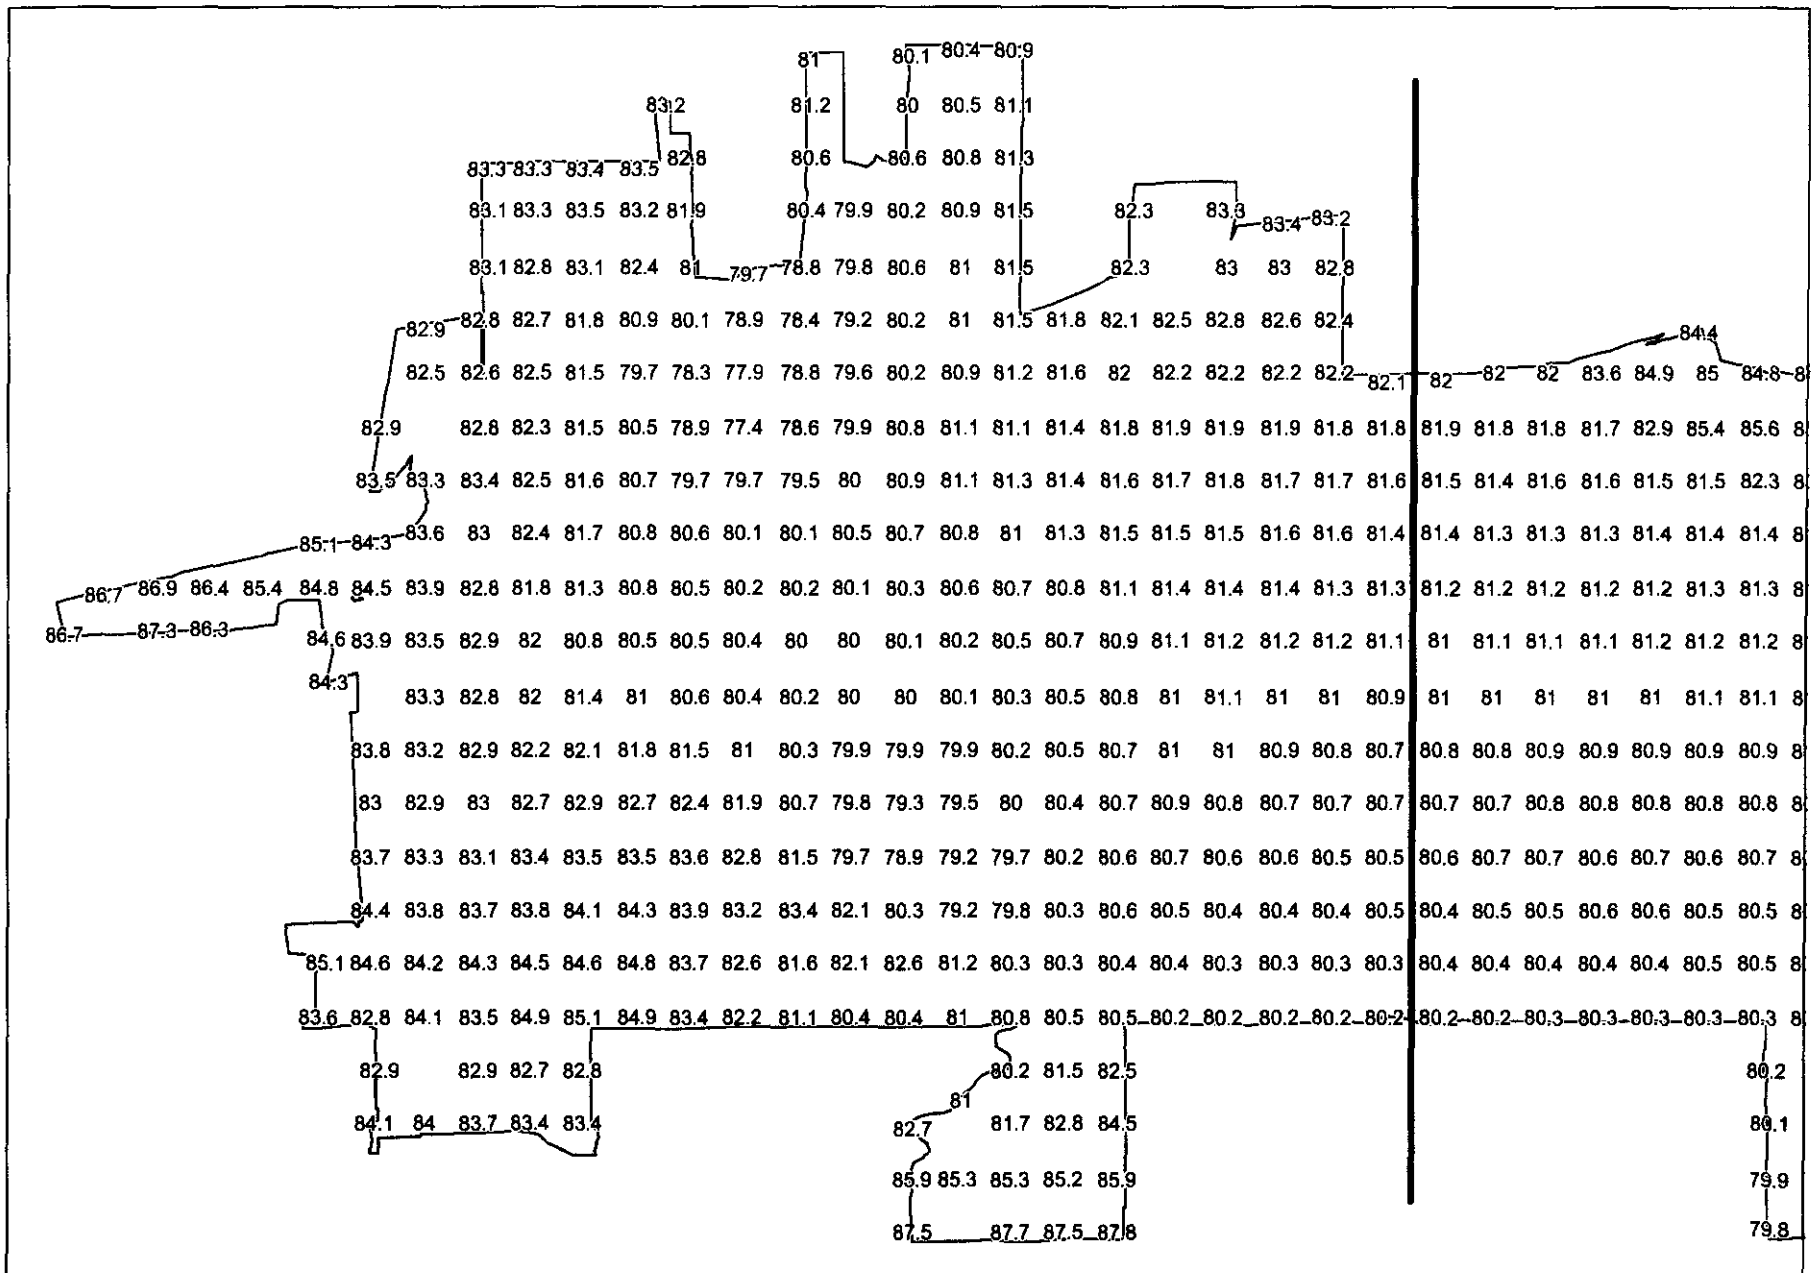 81 80.1 80.4 80.9
83.2 81.2 80 80.5 81.1
83.3 83.3 83.4 83.5 82.8 80.6 80.6 80.8 81.3
83.1 83.3 83.5 83.2 81.9 80.4 79.9 80.2 80.9 81.5 82.3 83.3 83.4 83.2
83.1 82.8 83.1 82.4 81 79.7 78.8 79.8 80.6 81 81.5 82.3 83 83 82.8
82.9 82.8 82.7 81.8 80.9 80.1 78.9 78.4 79.2 80.2 81 81.5 81.8 82.1 82.5 82.8 82.6 82.4 84.4
82.5 82.6 82.5 81.5 79.7 78.3 77.9 78.8 79.6 80.2 80.9 81.2 81.6 82 82.2 82.2 82.2 82.2 82.1 82 82 82 83.6 84.9 85 84.8 8
82.9 82.8 82.3 81.5 80.5 78.9 77.4 78.6 79.9 80.8 81.1 81.1 81.4 81.8 81.9 81.9 81.9 81.8 81.8 81.9 81.8 81.8 81.7 82.9 85.4 85.6 8
83.5 83.3 83.4 82.5 81.6 80.7 79.7 79.7 79.5 80 80.9 81.1 81.3 81.4 81.6 81.7 81.8 81.7 81.7 81.6 81.5 81.4 81.6 81.6 81.5 81.5 82.3 8
85.1 84.3 83.6 83 82.4 81.7 80.8 80.6 80.1 80.1 80.5 80.7 80.8 81 81.3 81.5 81.5 81.5 81.6 81.6 81.4 81.4 81.3 81.3 81.3 81.4 81.4 81.4 8
86.7 86.9 86.4 85.4 84.8 84.5 83.9 82.8 81.8 81.3 80.8 80.5 80.2 80.2 80.1 80.3 80.6 80.7 80.8 81.1 81.4 81.4 81.4 81.3 81.3 81.2 81.2 81.2 81.2 81.2 81.3 81.3 8
86.7 87.3 86.3 84.6 83.9 83.5 82.9 82 80.8 80.5 80.5 80.4 80 80 80.1 80.2 80.5 80.7 80.9 81.1 81.2 81.2 81.2 81.1 81 81.1 81.1 81.1 81.2 81.2 81.2 8
84.3 83.3 82.8 82 81.4 81 80.6 80.4 80.2 80 80 80.1 80.3 80.5 80.8 81 81.1 81 81 80.9 81 81 81 81 81 81.1 81.1 8
83.8 83.2 82.9 82.2 82.1 81.8 81.5 81 80.3 79.9 79.9 79.9 80.2 80.5 80.7 81 81 80.9 80.8 80.7 80.8 80.8 80.9 80.9 80.9 80.9 80.9 8
83 82.9 83 82.7 82.9 82.7 82.4 81.9 80.7 79.8 79.3 79.5 80 80.4 80.7 80.9 80.8 80.7 80.7 80.7 80.7 80.7 80.8 80.8 80.8 80.8 80.8 8
83.7 83.3 83.1 83.4 83.5 83.5 83.6 82.8 81.5 79.7 78.9 79.2 79.7 80.2 80.6 80.7 80.6 80.6 80.5 80.5 80.6 80.7 80.7 80.6 80.7 80.6 80.7 8
84.4 83.8 83.7 83.8 84.1 84.3 83.9 83.2 83.4 82.1 80.3 79.2 79.8 80.3 80.6 80.5 80.4 80.4 80.4 80.5 80.4 80.5 80.5 80.6 80.6 80.5 80.5 8
85.1 84.6 84.2 84.3 84.5 84.6 84.8 83.7 82.6 81.6 82.1 82.6 81.2 80.3 80.3 80.4 80.4 80.3 80.3 80.3 80.3 80.4 80.4 80.4 80.4 80.4 80.5 80.5 8
83.6 82.8 84.1 83.5 84.9 85.1 84.9 83.4 82.2 81.1 80.4 80.4 81 80.8 80.5 80.5 80.2 80.2 80.2 80.2 80.2 80.2 80.2 80.3 80.3 80.3 80.3 80.3 8
82.9 82.9 82.7 82.8 80.2 81.5 82.5 80.2
81
84.1 84 83.7 83.4 83.4 82.7 81.7 82.8 84.5 80.1
85.9 85.3 85.3 85.2 85.9 79.9
87.5 87.7 87.5 87.8 79.8